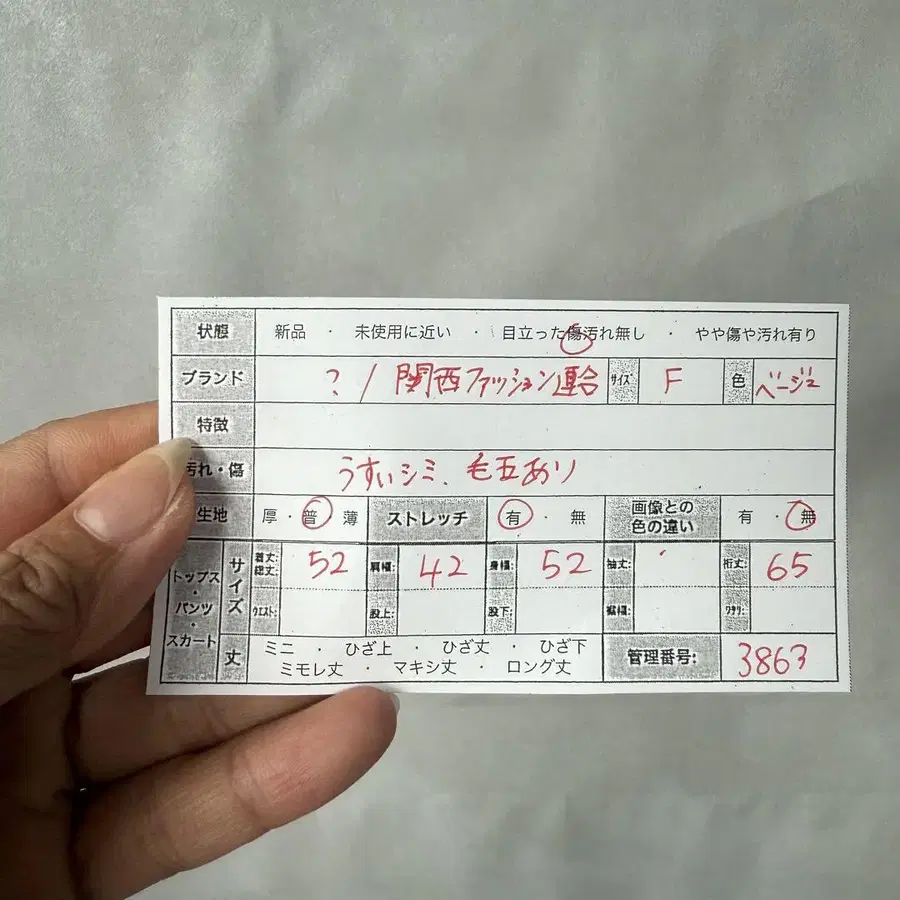 状態 新品 ・ 未使用に近い ・ 目立った傷汚れ無し ・ やや傷や汚れ有り
ブランド ? / 関西ファッション連合 サイズ F 色 ベージュ
特徴
汚れ・傷 うすいシミ、毛玉あり
生地 厚・普・薄 ストレッチ 有 ・ 無 画像との色の違い 有 ・ 無
トップス・パンツ・スカート サイズ 着丈:総丈: 52 肩幅: 42 身幅: 52 袖丈: 裄丈: 65
ウエスト: 股上: 股下: 裾幅: ワタリ:
丈 ミニ ・ ひざ上 ・ ひざ丈 ・ ひざ下
ミモレ丈 ・ マキシ丈 ・ ロング丈
管理番号: 3863